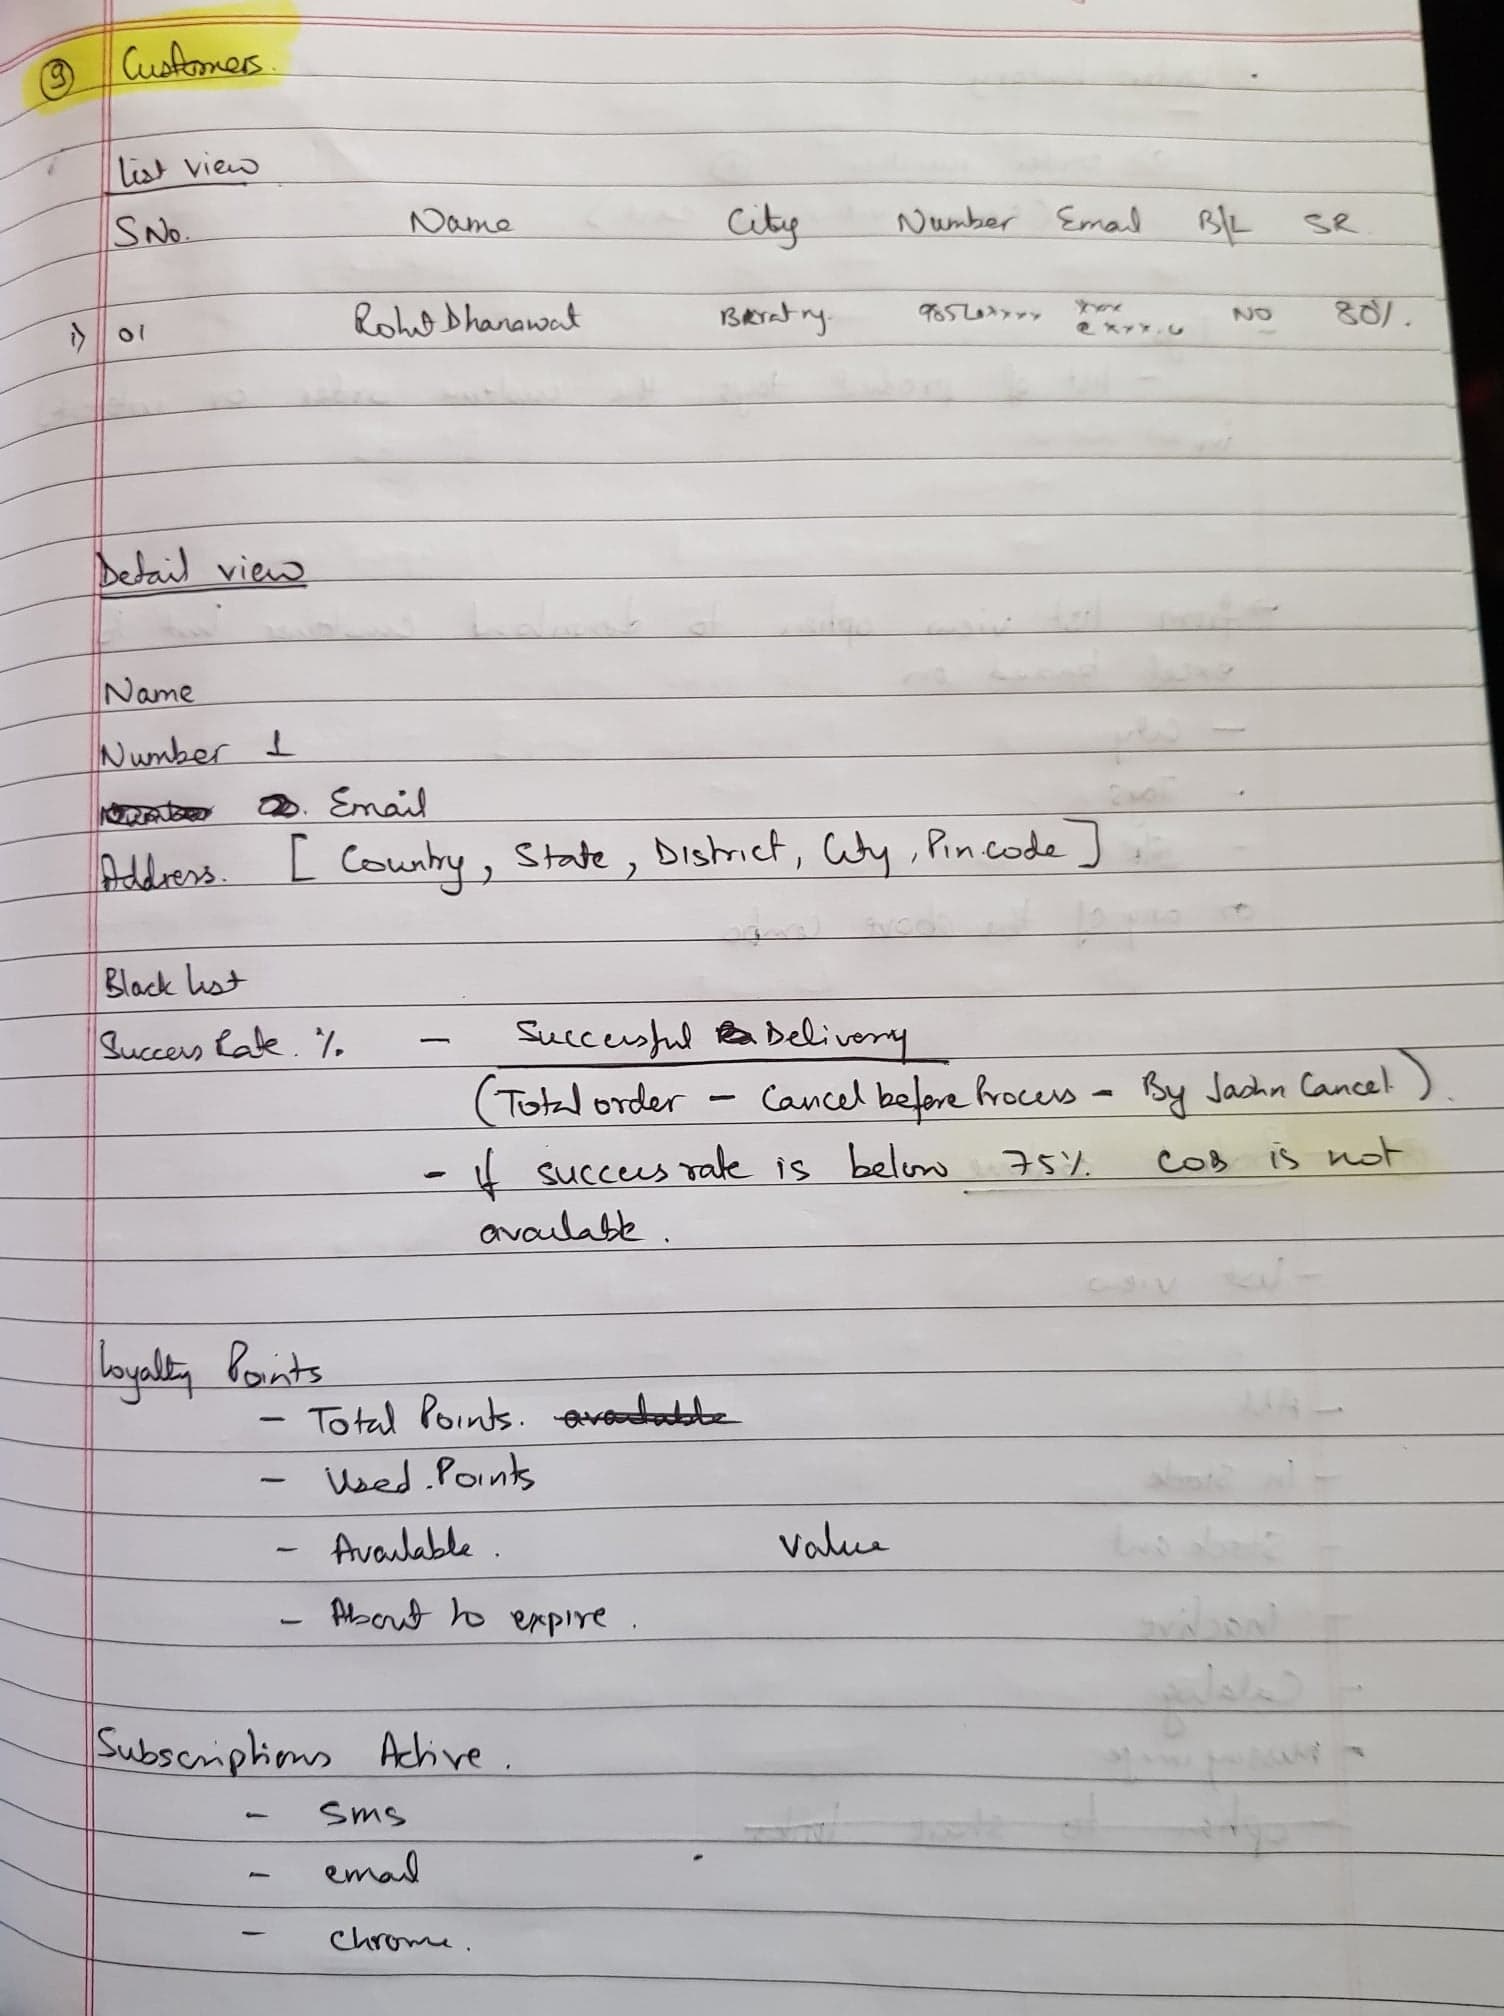 9 Customers.
List view
SNo. Name City Number Email B/L SR
i) 01 Rohit Dhanawat NO 80%.
Detail view
Name
Number 1
Email
Address. [ Country, State, District, City, Pincode ]
Black list
Success Rate. % - Successful Delivery
(Total order - Cancel before Process - By Jashn Cancel)
- if success rate is below 75% COD is not
available.
Loyalty Points
- Total Points. available
- Used Points
- Available. Value
- About to expire.
Subscriptions Active.
- SMS
- email
- chrome.